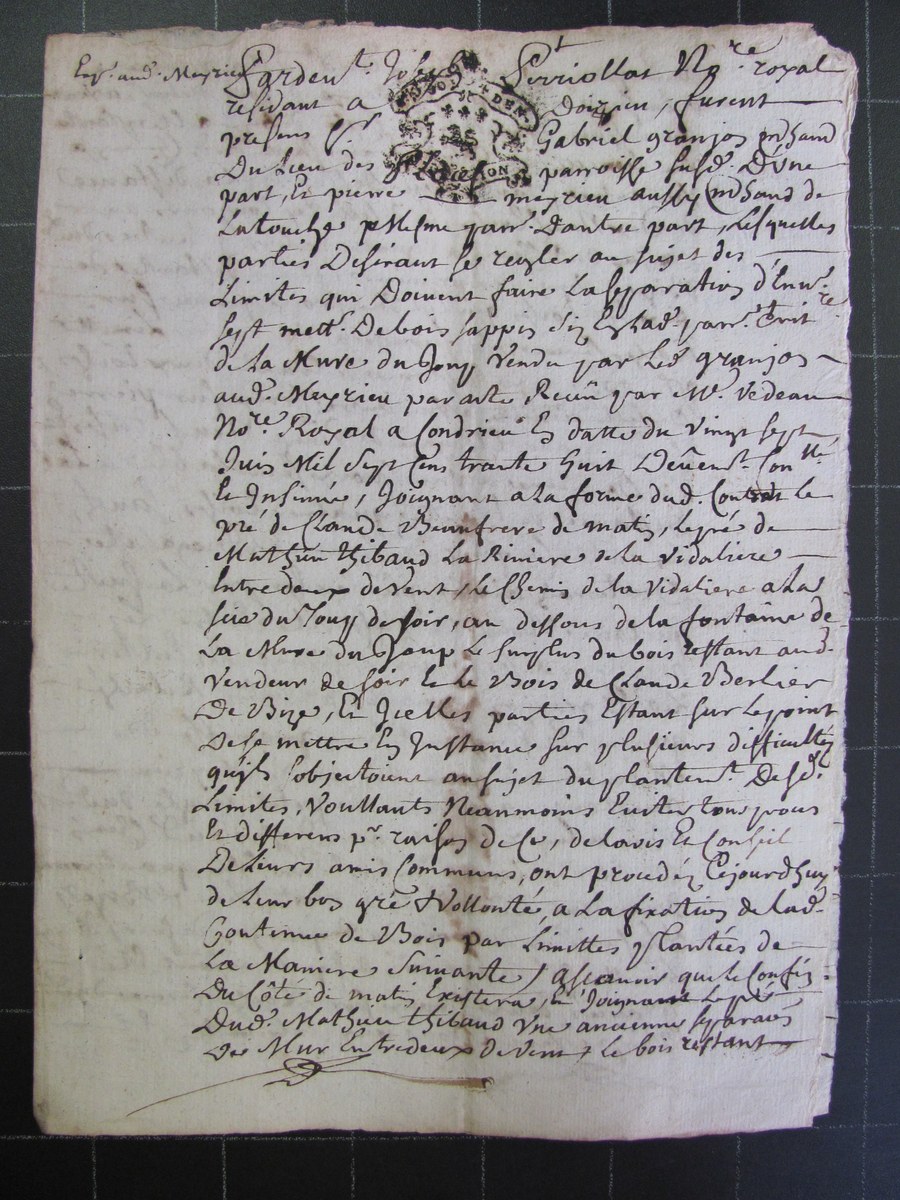 Exp. aud. Meyrieu
Pardevt. Joseph Ferriollat Nore. royal
residant a Doizieu, furent
presens Sr. Gabriel granjon mchand
Du Lieu des parroisse susd. D'une
part, Et pierre meyrieu aussy mchand de
Latouche mesme parr. Dautre part, Lesquelles
parties Desirant se regler au sujet des
Limites qui Doivent faire La separation d'Env.
sept mett. De bois sappin size Esdad. parr. Territre.
de La Mure du Joug vendu par Led. granjon
aud. Meyrieu par acte Receû par Me. Vedeau
Nore. Royal a Condrieu En datte du vingt sept
Juin Mil Sept Cens trante huit Dêuemt. Conllé.
Et Insinué, Joignant a La forme dud. Contrat le
pré de Claude Beaufrere de matin, le pré de
Mathieu thibaud La Riviere de la vidaliere
Entre deux de vent, Le Chemin de la Vidaliere a La
scie du Joug de soir, au dessous de la fontaine de
La Mure du Joug Le surplus du bois restant aud.
Vendeur de soir Et le Bois de Claude Berlier
De Bize, Et Icelles parties Estant sur le point
De se mettre En Instance sur plusieurs difficultés
quils s'objectoient au sujet du plantemt. Desd.
Limites, Voullants Neanmoins Eviter tous proces
Et differens pr. raison de Ce, de lavis Et Conseil
De Leurs amis Communs, ont procedéz Cejourdhuy
de Leur bon gré & Vollonté, a La fixation de lad.
Contenue de Bois par Limittes plantées de
La Maniere Suivante / Ascavoir que le Confin
Du Côté de matin Existera, En Joignant Le pré
Dud. Mathieu thibaud Une ancienne separaon
De Mur Entredeux De vent, le bois restant